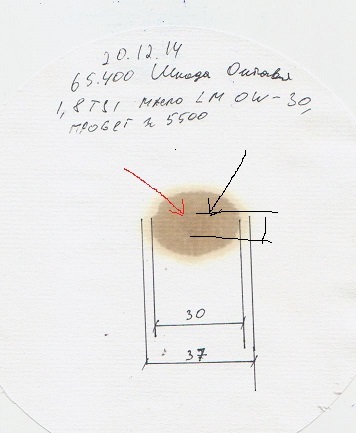 20.12.14
65.400 Шкода Октавия
1,8 TSI масло LM 0W-30,
пробег ≈ 5500
30
37